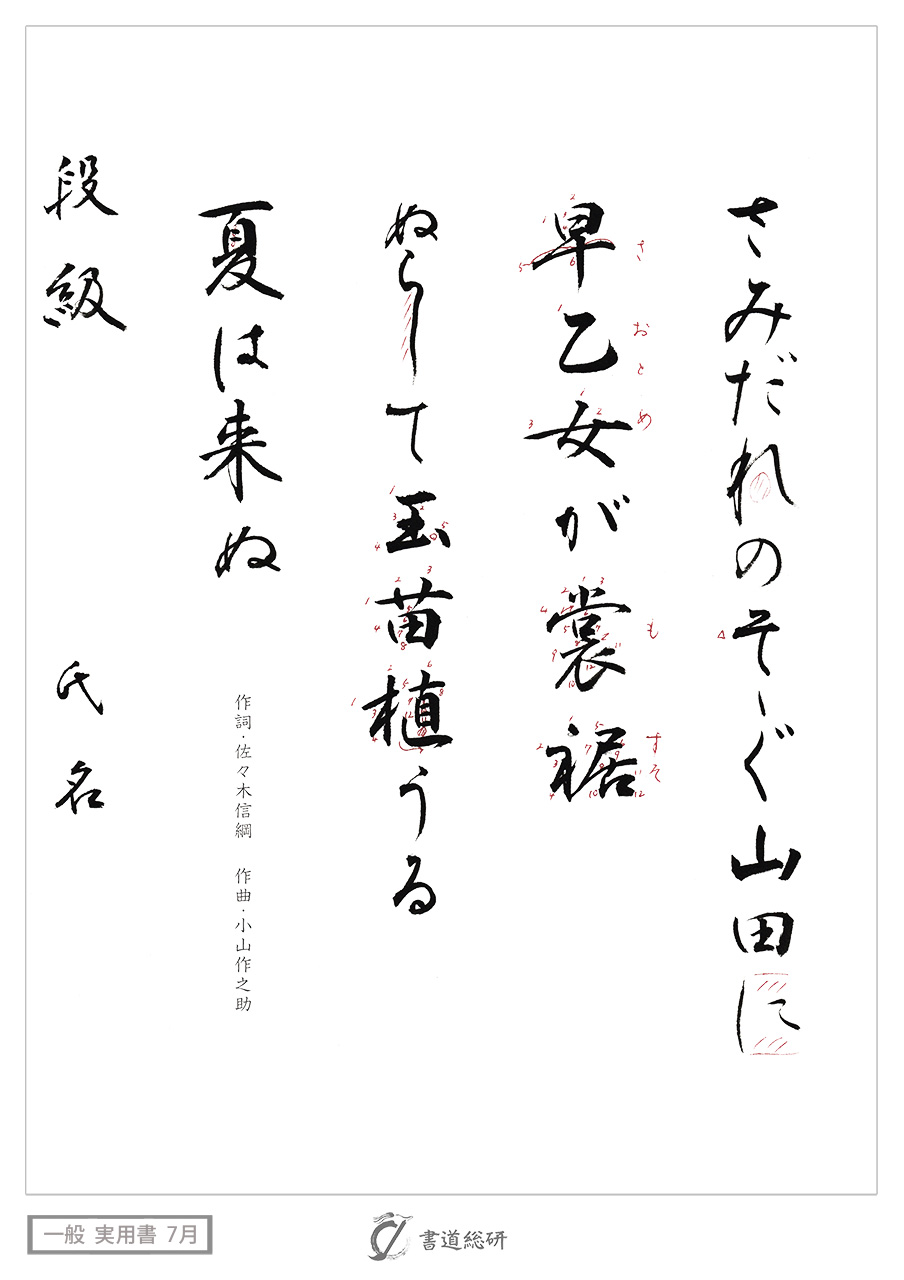 さみだれのそゝぐ山田に
早乙女が裳裾
さ おとめ も すそ
ぬらして玉苗植うる
夏は来ぬ
作詞・佐々木信綱 作曲・小山作之助
段級 氏名
一般 実用書 7月
書道総研